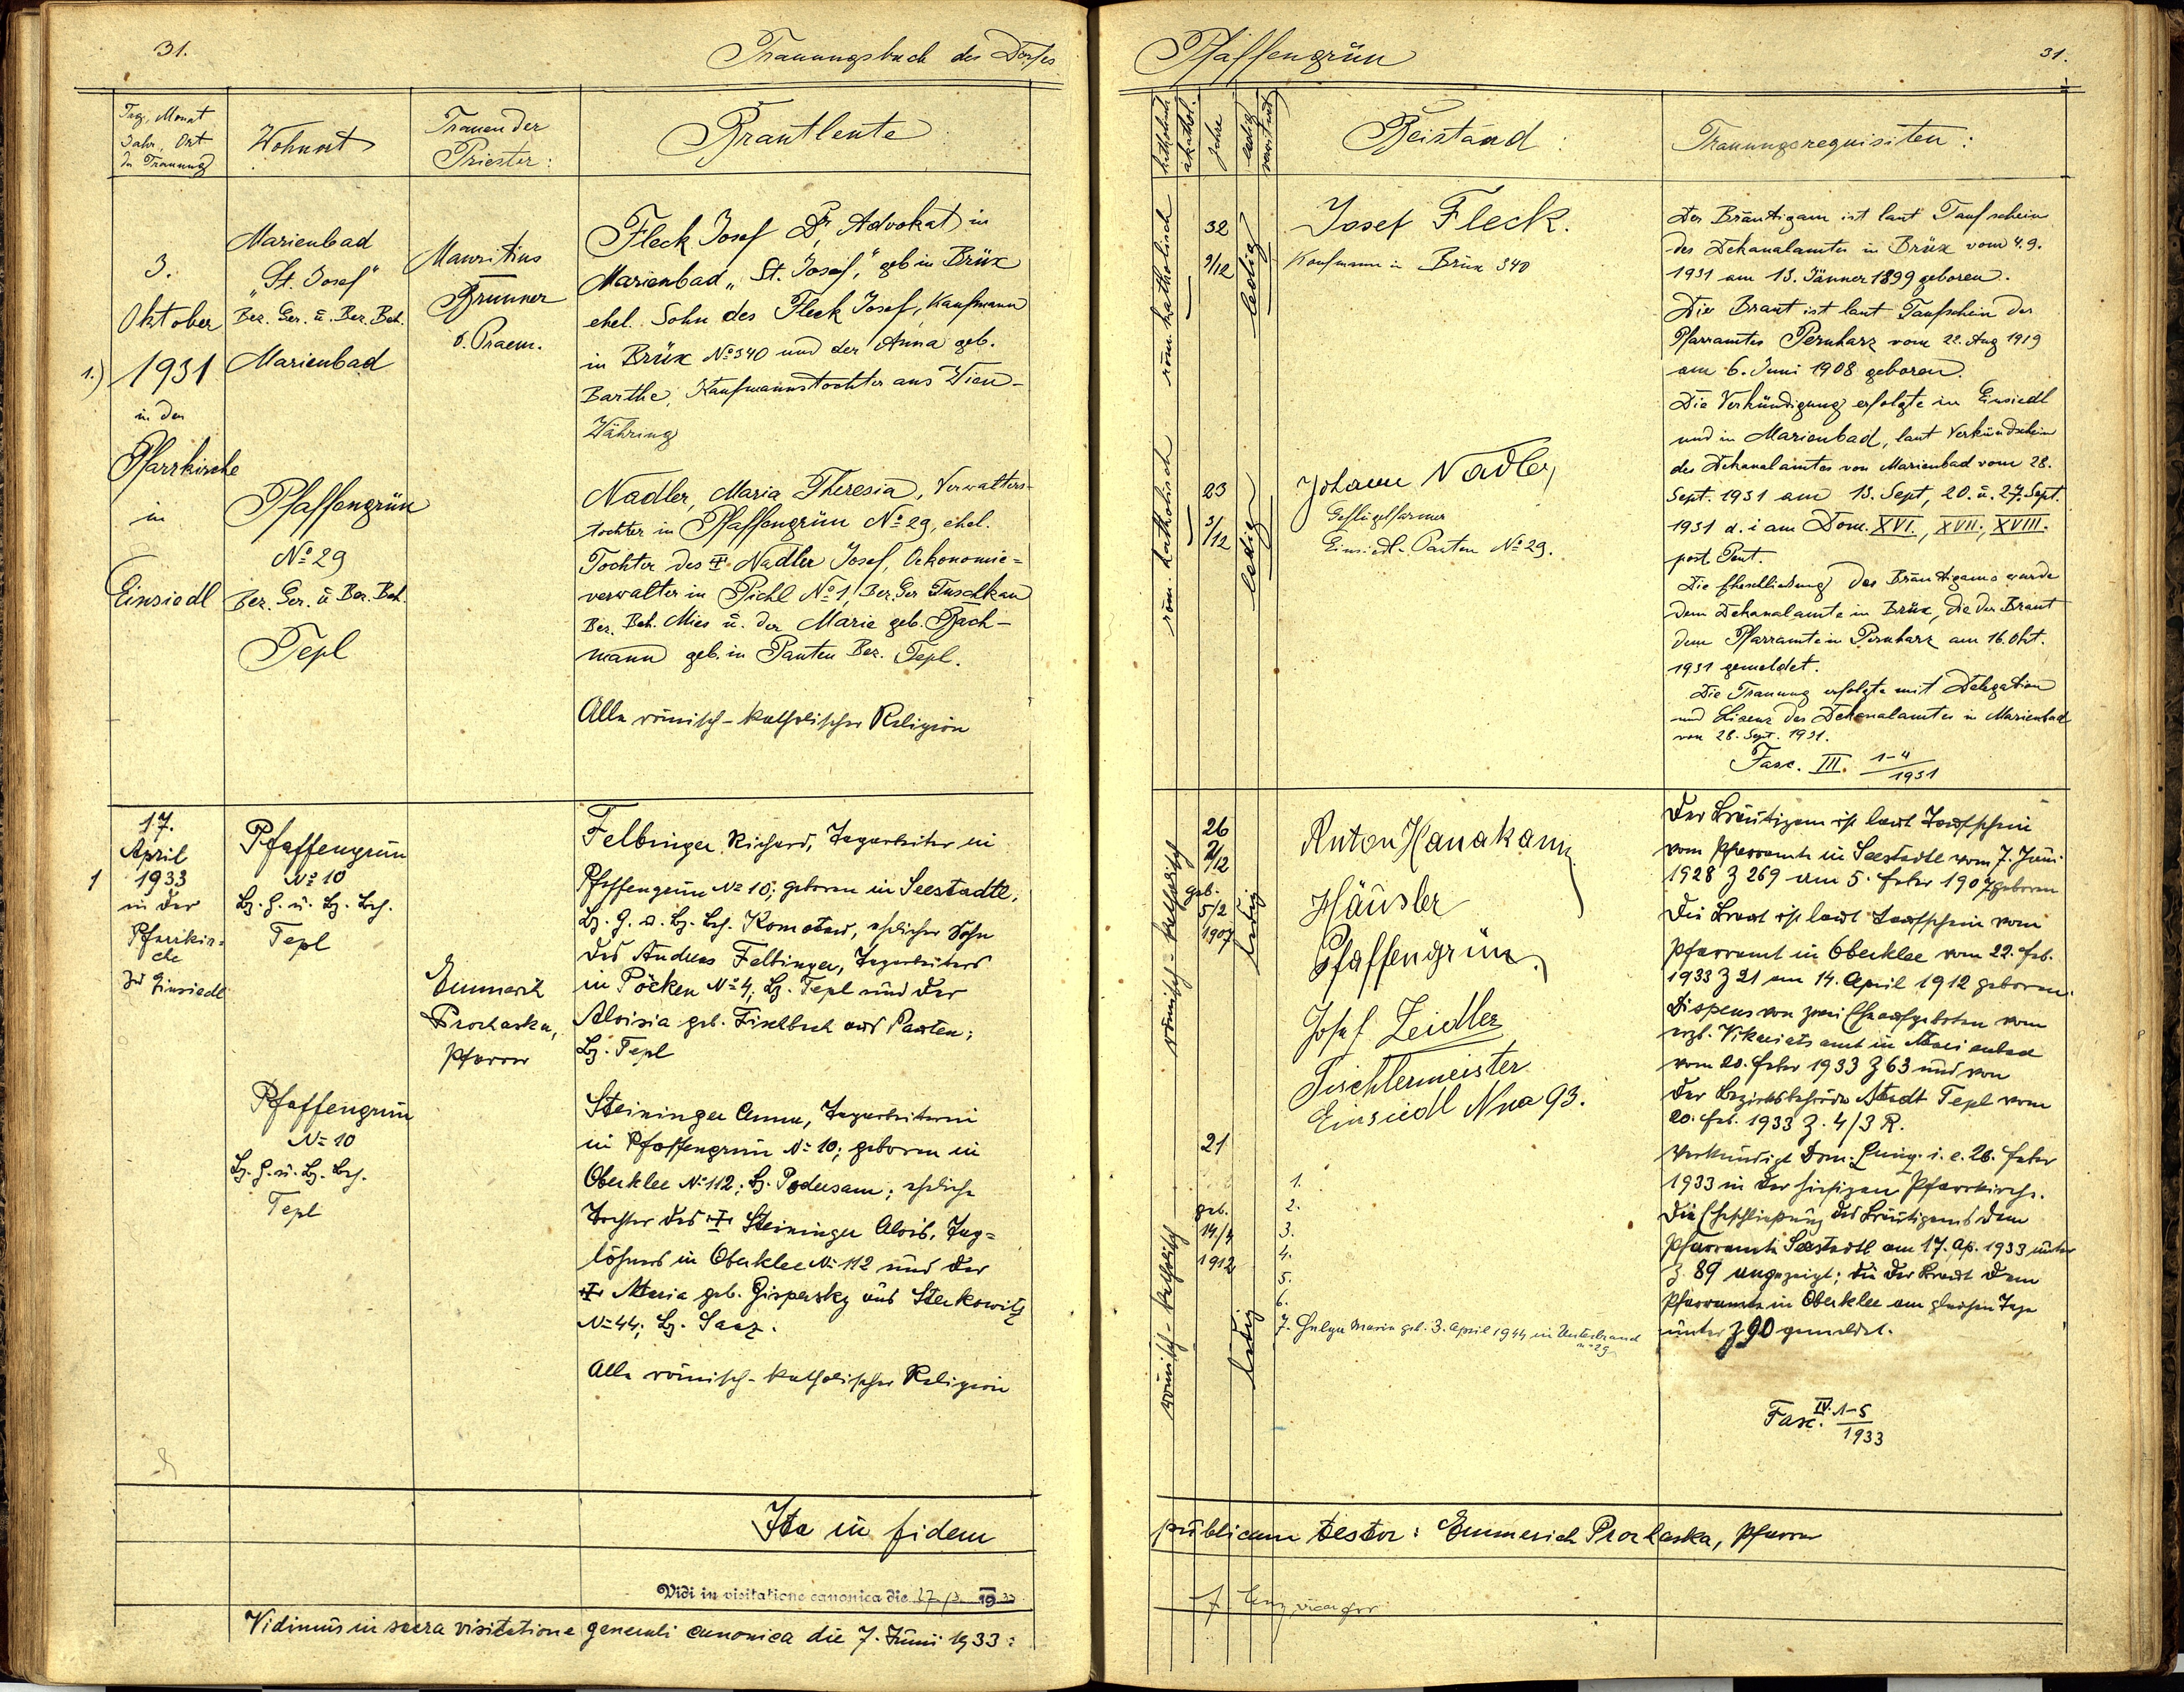 31.
Trauungsbuch des Dorfes
Tag, Monat
Jahr, Ort
der Trauung
Wohnort
Trauender
Priester:
Brautleute
3.
Oktober
1.) 1931
in der
Pfarrkirche
in
Einsiedl
Marienbad
"St. Josef"
Bez. Ger. u. Bez. Beh.
Marienbad
Pfaffengrün
No 29
Bez. Ger. u Bez. Beh.
Tepl
Mauritius
Brunner
o. Praem.
Fleck Josef Dr, Advokat in
Marienbad "St. Josef," geb in Brüx
ehel. Sohn des Fleck Josef, Kaufmann
in Brüx No 340 und der Anna geb.
Barthe, Kaufmannstochter aus Wien-
Währing
Nadler, Maria Theresia, Verwalters-
tochter in Pfaffengrün No 29, ehel.
Tochter des † Nadler Josef, Oekonomie=
verwalter in Pichl No 1, Bez. Ger Tuschkau
Bez. Beh. Mies u. der Marie geb. Bach-
mann geb. in Pauten Bez. Tepl.
Alle römisch-katholischer Religion
17.
April
1 1933
in der
Pfarrkir=
che
zu Einsiedl
Pfaffengrün
No 10
Bz. G. u. Bz. Bh.
Tepl
Pfaffengrün
No 10
Bz. G. u. Bz. Bh.
Tepl
Emmerich
Prochaska,
Pfarrer
Felbinger Richard, Tagarbeiter in
Pfaffengrün No 10; geboren in Seestadtl,
Bz. G. u. Bz. Bh. Komotau, ehelicher Sohn
des Andreas Felbinger, Tagarbeiters
in Pöcken No 4; Bz. Tepl und der
Aloisia geb. Fischbech aus Pauten;
Bz. Tepl
Steininger Anna, Tagarbeiterin
in Pfaffengrün No 10; geboren in
Oberklee No 112; Bz. Podersam; eheliche
Tochter des † Steininger Alois, Tag=
löhners in Oberklee No 112 und der
† Maria geb. Gispersky aus Sterkowitz
No 44; Bz. Saaz.
Alle römisch-katholischer Religion
Ita in fidem
Vidi in visitatione canonica die 27/3 1933
Vidimus in sacra visitatione generali canonica die 7. Juni 1933:
Pfaffengrün
31.
katholisch
akathol.
Jahre
ledig
verwitwet
Beistand:
Trauungsrequisiten:
röm. katholisch
32
9/12
ledig
Josef Fleck.
Kaufmann in Brüx 340
röm. katholisch
23
3/12
ledig
Johann Nadler
Geflügelfarmer
Einsiedl-Pauten No 29.
Der Bräutigam ist laut Taufschein
des Dekanalamtes in Brüx vom 4. 9.
1931 am 13. Jänner 1899 geboren.
Die Braut ist laut Taufschein des
Pfarramtes Pernharz vom 22. Aug 1919
am 6. Juni 1908 geboren.
Die Verkündigung erfolgte in Einsiedl
und in Marienbad, laut Verkündschein
des Dekanalamtes von Marienbad vom 28.
Sept. 1931 am 13. Sept, 20. u. 27. Sept.
1931 d. i am Dom. XVI., XVII., XVIII.
post Pent.
Die Eheschließung des Bräutigams wurde
dem Dekanalamte in Brüx, die der Braut
dem Pfarramte in Pernharz am 16. Okt.
1931 gemeldet.
Die Trauung erfolgte mit Delegation
und Lizenz des Dekanalamtes in Marienbad
von 28. Sept. 1931.
Fasc. III. 1-4/1931
römisch-katholisch
26
2/12
geb.
5/2
1907
ledig
Anton Hanakam
Häusler
Pfaffengrün.
Josef Zeidler
Tischlermeister
Einsiedl Nro 93.
römisch-katholisch
21
geb.
14/4
1912
ledig
1.
2.
3.
4.
5.
6.
7. Helga Maria geb. 3. April 1944 in Untersandau
29
Der Bräutigam ist laut Taufschein
vom Pfarramte in Seestadtl vom 7. Juni
1928 Z 269 am 5. Feber 1907 geboren
Die Braut ist laut Taufschein vom
Pfarramt in Oberklee vom 22. Feb.
1933 Z 21 am 14. April 1912 geboren.
Dispens von zwei Eheaufgeboten vom
erzb. Vikariatsamt in Marienbad
vom 20. Feber 1933 Z 63 und von
der Bezirksbehörde Stadt Tepl vom
20. Feb. 1933 Z. 4/3 R.
Verkündigt Dom. Quing. i. e. 26. Feber
1933 in der hiesigen Pfarrkirche.
Die Eheschließung des Bräutigams dem
Pfarramte Seestadtl am 17. Ap. 1933 unter
Z. 89 angezeigt; die der Braut dem
Pfarramte in Oberklee am gleichen Tage
unter Z 90 gemeldet.
Fasc. IV. 1-5/1933
publicam testor: Emmerich Prochaska, Pfarrer